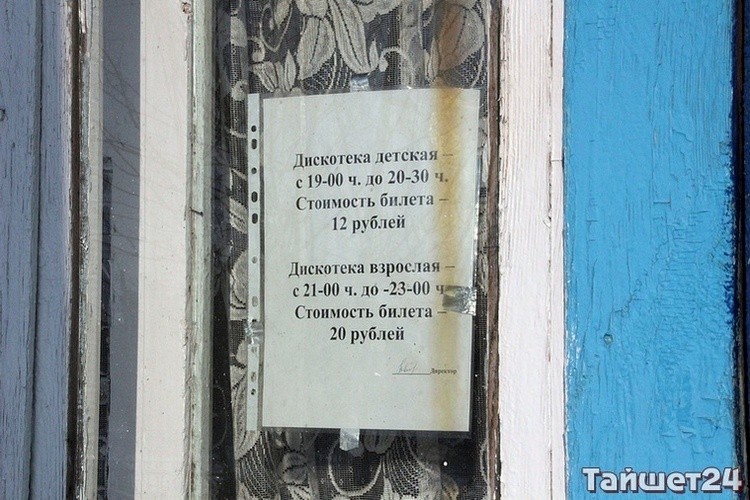 Дискотека детская –
с 19-00 ч. до 20-30 ч.
Стоимость билета –
12 рублей
Дискотека взрослая –
с 21-00 ч. до -23-00 ч.
Стоимость билета –
20 рублей
Директор
Тайшет24